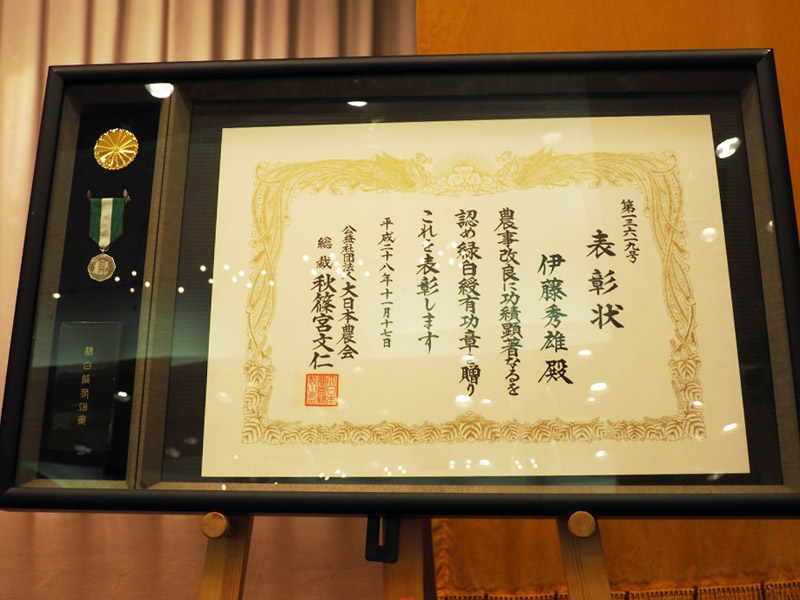 第一三六一九号
表彰状
伊藤秀雄殿
農事改良に功績顕著なるを
認め緑白綬有功章を贈り
これを表彰します
平成二十八年十一月十七日
公益社団法人大日本農会
総裁秋篠宮文仁
緑白綬有功章